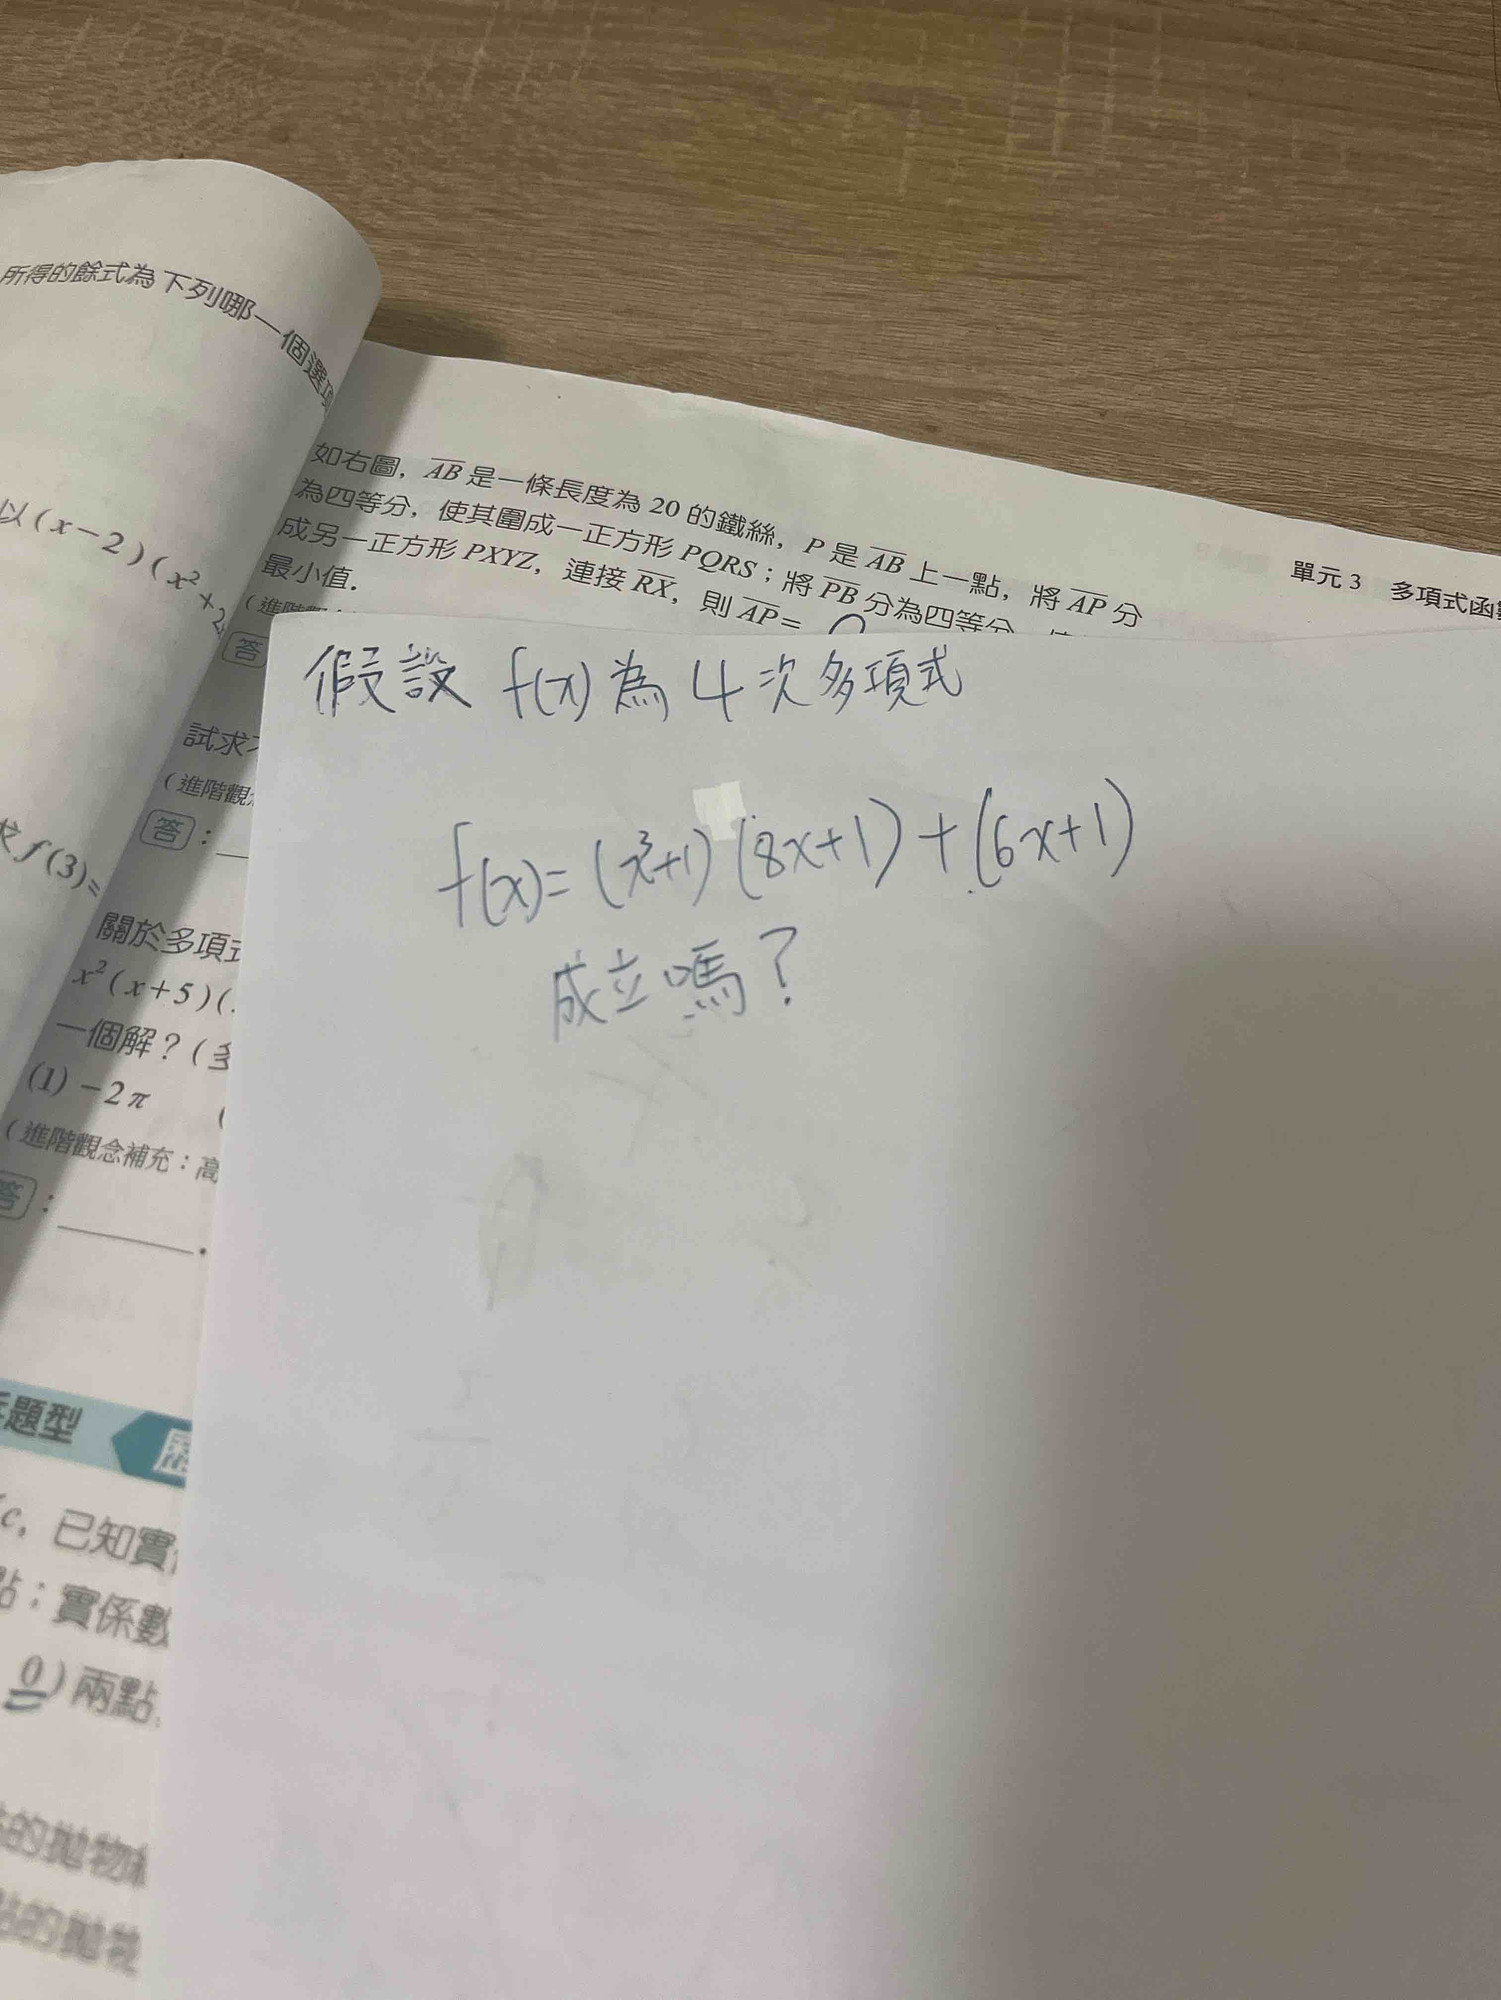 所得的餘式為下列哪一個選項
以(x－2)(x²＋2
求 f(3)=
單元 3 多項式函
如右圖，AB 是一條長度為 20 的鐵絲，P 是 AB 上一點，將 AP 分
為四等分，使其圍成一正方形 PQRS；將 PB 分為四等分，
成另一正方形 PXYZ，連接 RX，則 AP＝
最小值．
(進階觀
答
試求
(進階觀
答：
關於多項式
x²(x＋5)(
一個解？(多
(1)－2π (
(進階觀念補充：高
答：
假設 f(x)為4次多項式
f(x)=(x³+1)(8x+1)+(6x+1)
成立嗎？
題型
c，已知實
點；實係數
0)兩點，
的拋物線
點的拋物